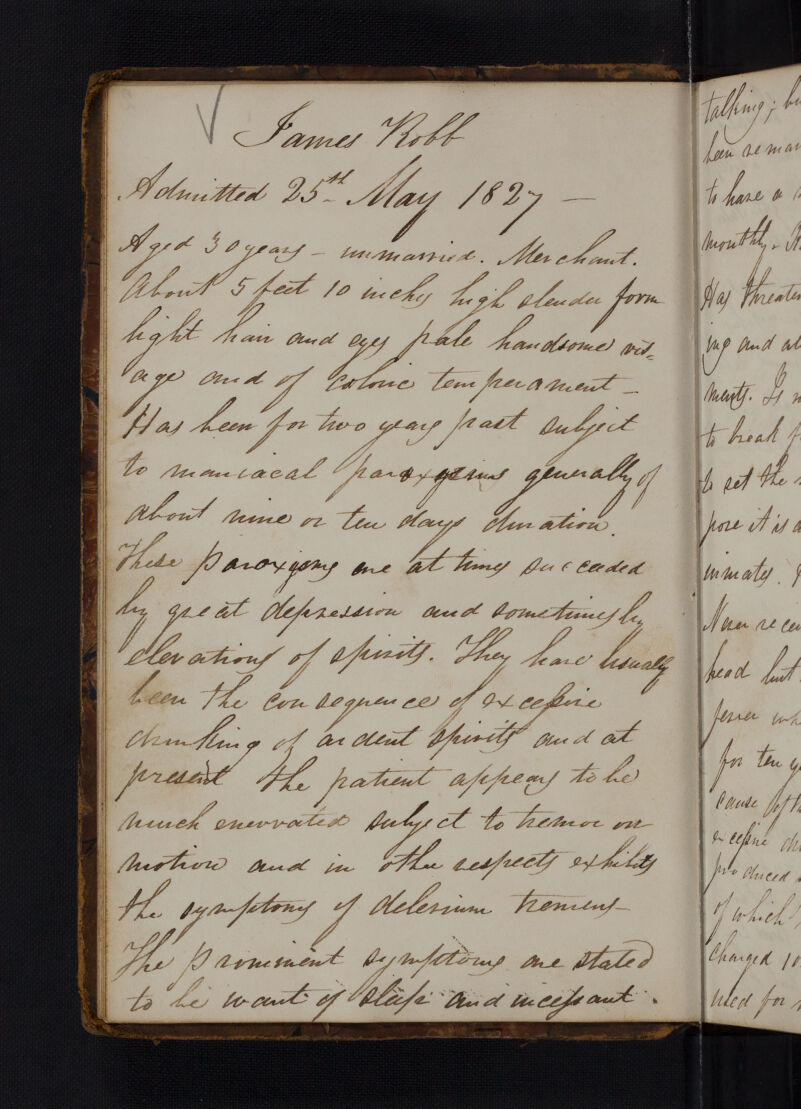 James Robb
Admitted 25th May 1827 —
Aged 30 years – unmarried. Merchant.
About 5 feet 10 inches high slender form
light hair and eyes pale handsome vis=
age and of coloric temperament –
Has been for two years past subject
to maniacal paroxysms generally of
about nine or ten days duration.
These paroxysms are at times succeeded
by great depression and sometimes by
elevations of spirits. They have usually
been the consequence of excessive
drinking of ardent spirits and at
present the patient appears to be
much enervated subject to tremor on
motion and in other respects exhibits
the symptoms of delerium tremens –
The prominent symptoms are stated
to be want of sleep and incessant.
talking; bu
been remar
to have a
monthly.
Has threaten
ing and at
ments. Is n
to break f
to set the
pose it is a
inmates.
Never recei
head but
fever wh
for ten y
cause of th
excessive dri
produced
of which
charged 10
used for